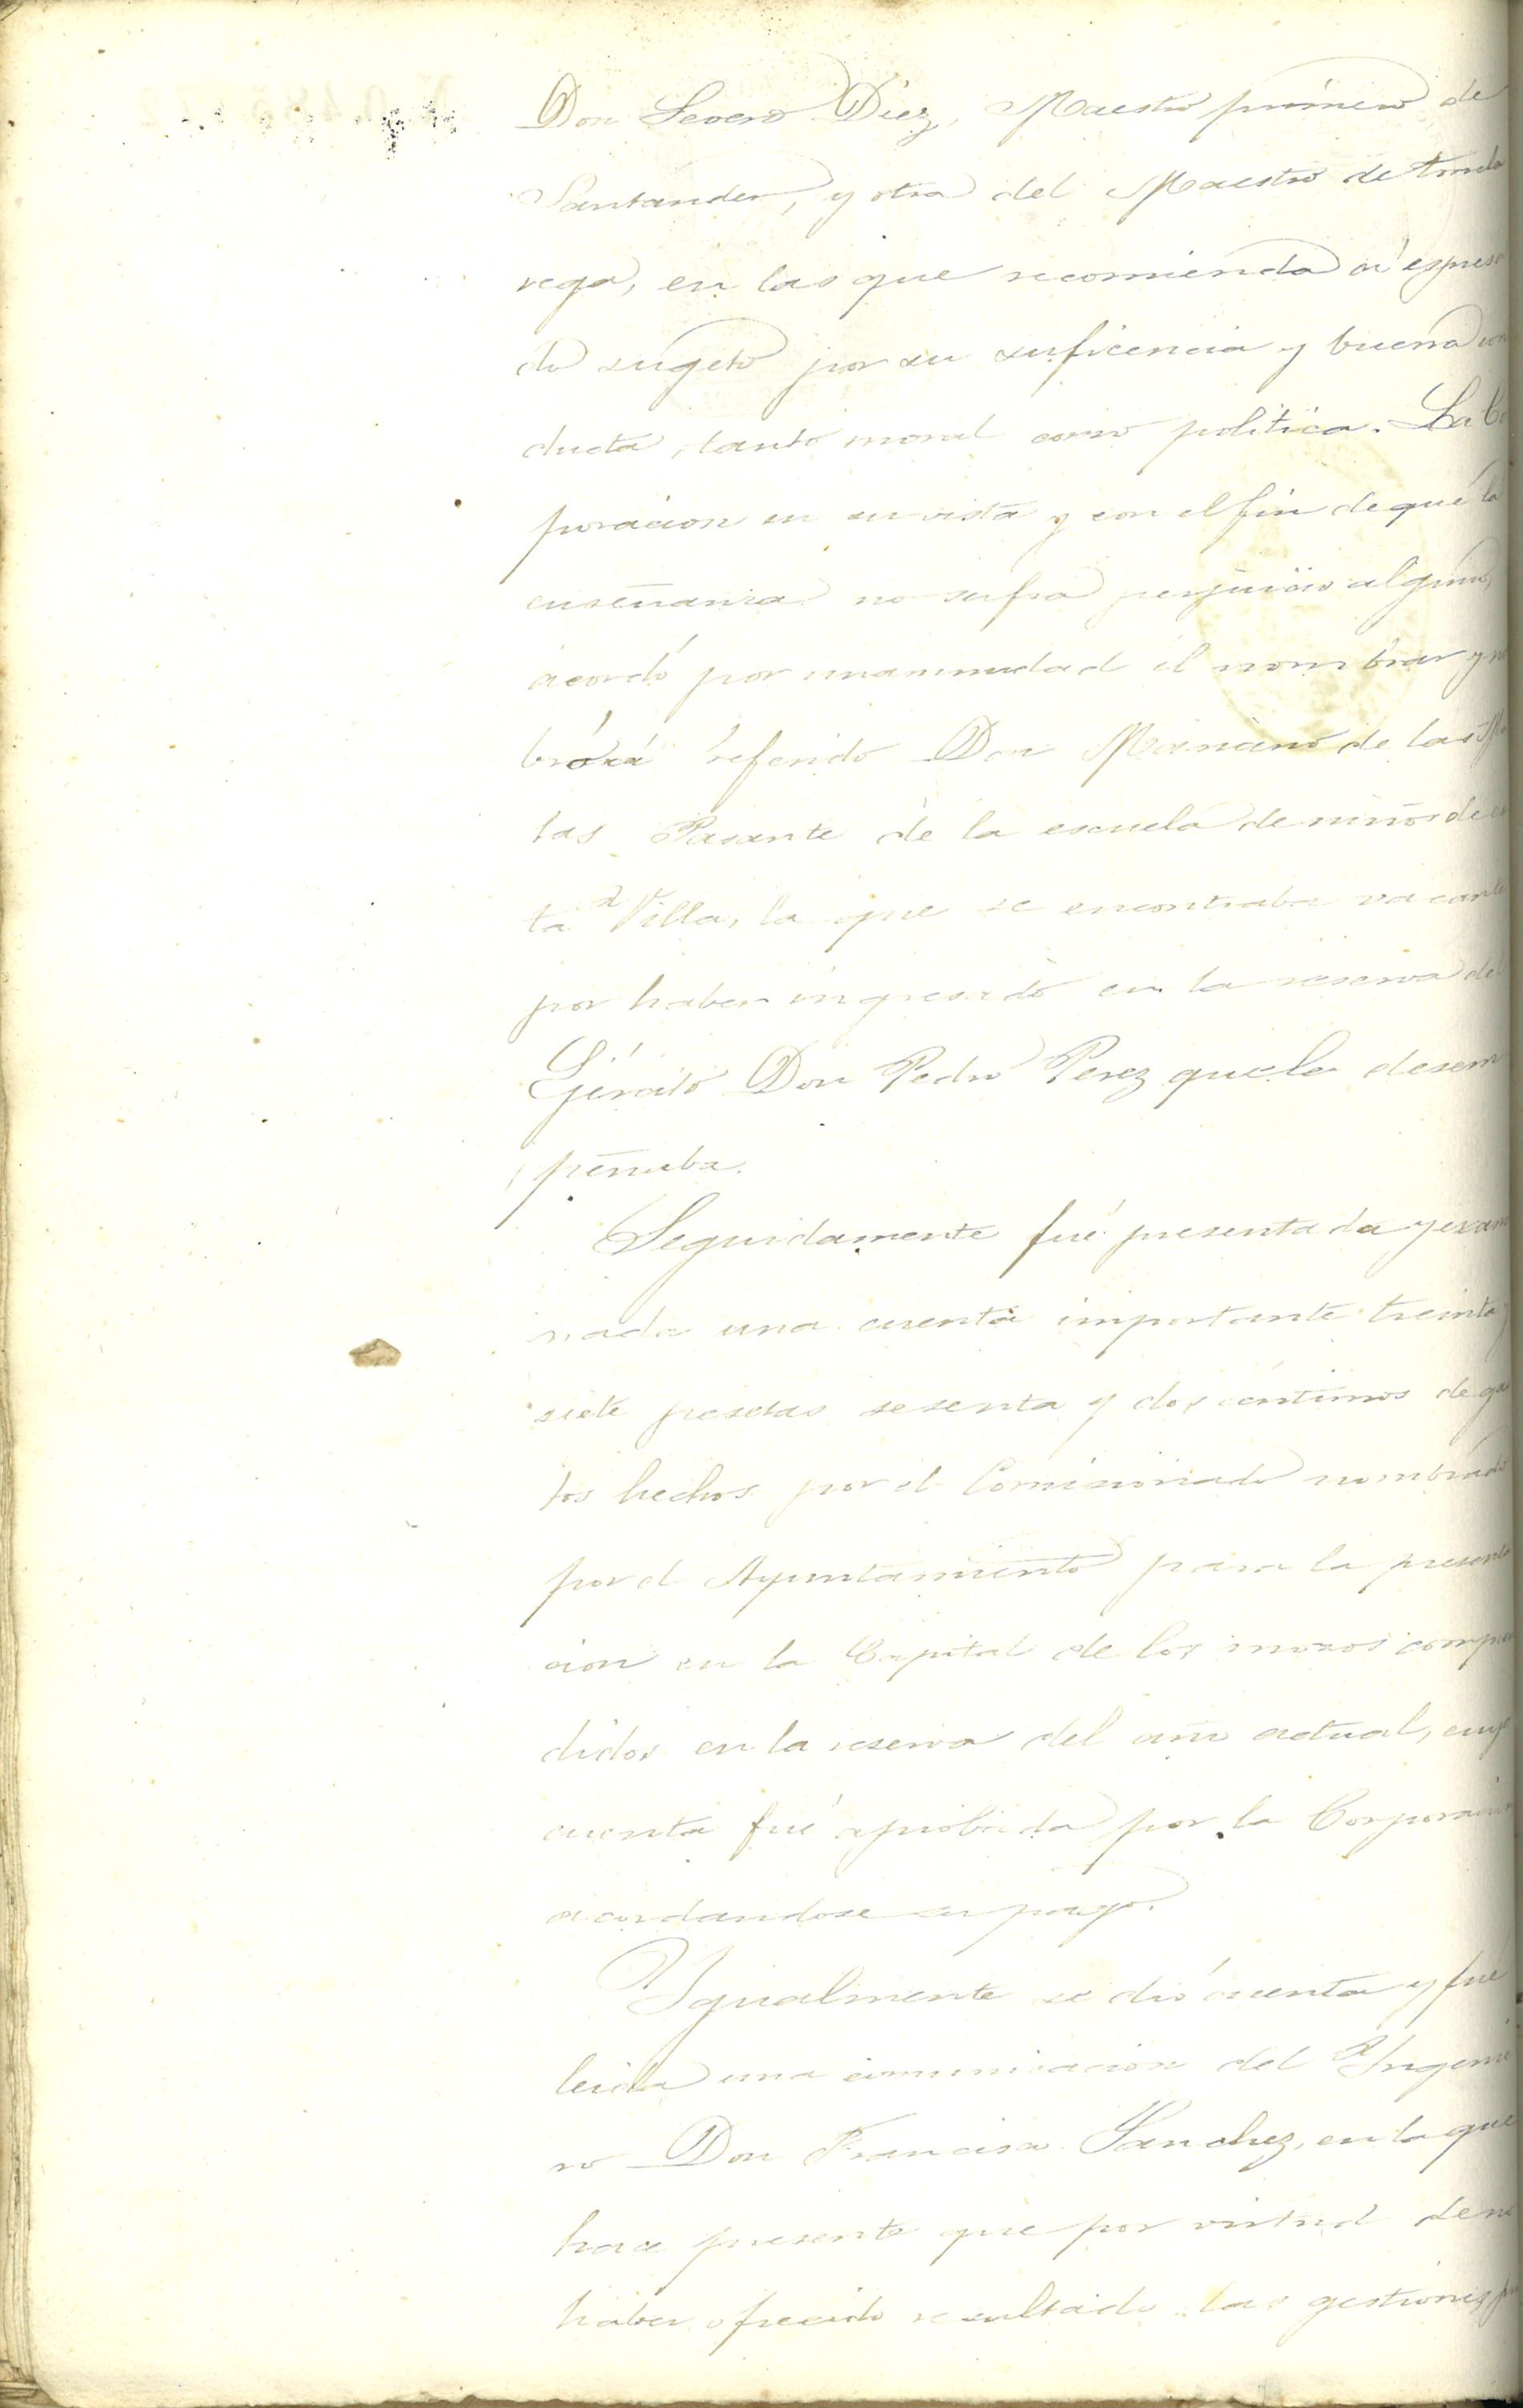 Don Severo Diez, Maestro primero de
Santander, y otra del Maestro de Torrela
vega, en las que recomienda á espresa
do sugeto por su suficencia y buena con
ducta, tanto moral como politica. La Co
poracion en su vista y con el fin de que la
enseñanza no sufra perjuicio alguno,
acordó por unanimidad el nombrar y no
bró al referido Don Mariano de las
tas Pasante de la escuela de niños de es
ta Villa, la que se encontraba vacante
por haber ingresado en la reserva del
Ejército Don Pedro Perez que la desem
peñaba.
Seguidamente fué presentada y exam
nada una cuenta importante treinta y
siete pesetas sesenta y dos centimos de gas
tos hechos por el Comisionado nombrado
por el Ayuntamiento para la presenta
cion en la Capital de los mozos compren
didos en la reserva del año actual, cuya
cuenta fué aprobada por la Corporacion
acordandose su pago.
Igualmente se dió cuenta y fué
leida una comunicacion del Ingenie
ro Don Francisco Sanchez, en la que
hace presente que por virtud de no
haber ofrecido resultado las gestiones